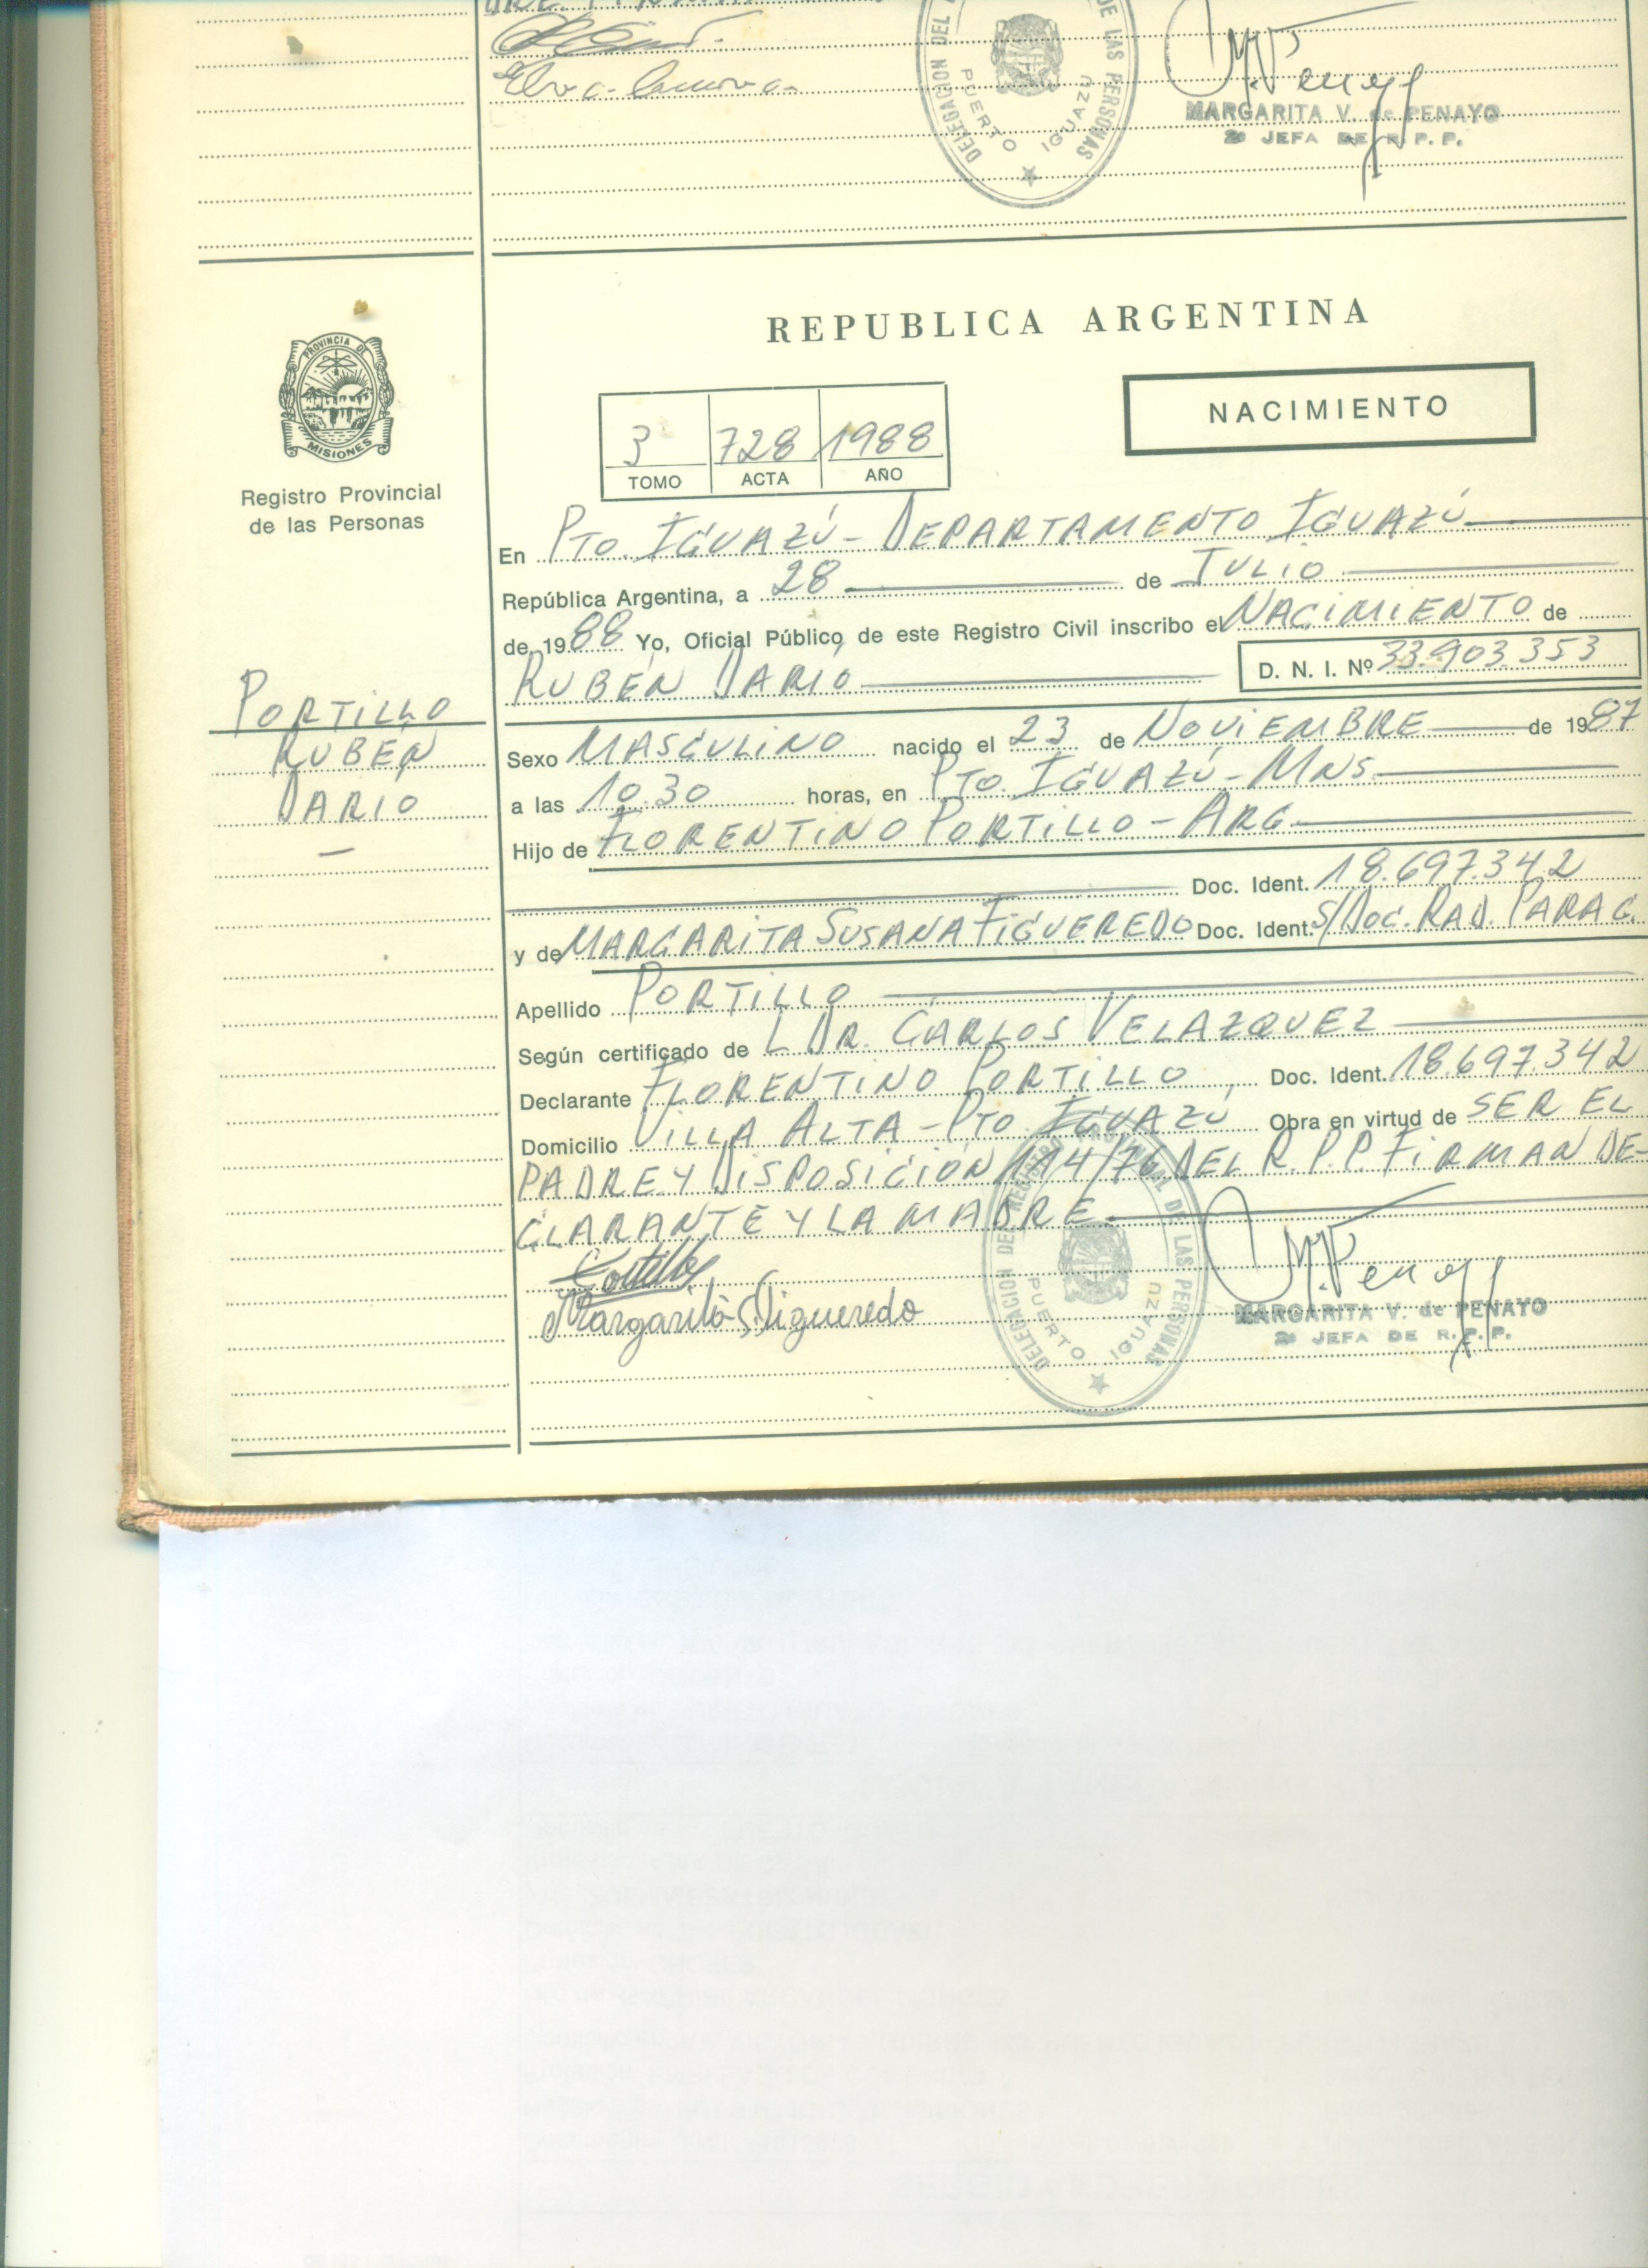 DELEGACION DEL
DE LAS PERSONAS
PUERTO IGUAZU
MARGARITA V. de PENAYO
2º JEFA DE R. P. P.
REPUBLICA ARGENTINA
PROVINCIA DE
MISIONES
Registro Provincial
de las Personas
NACIMIENTO
3 728 1988
TOMO ACTA AÑO
En PTO. IGUAZÚ - DEPARTAMENTO IGUAZÚ
República Argentina, a 28 de JULIO
de 1988 Yo, Oficial Público de este Registro Civil inscribo el NACIMIENTO de
RUBÉN DARÍO D. N. I. Nº 33.903.353
PORTILLO
RUBÉN
DARIO
Sexo MASCULINO nacido el 23 de NOVIEMBRE de 1987
a las 10.30 horas, en PTO. IGUAZÚ - MNS.
Hijo de FLORENTINO PORTILLO - ARG.
Doc. Ident. 18.697.342
y de MARGARITA SUSANA FIGUEREDO Doc. Ident. S/DOC. RAD. PARAG.
Apellido PORTILLO
Según certificado de L DR. CARLOS VELAZQUEZ
Declarante FLORENTINO PORTILLO, Doc. Ident. 18.697.342
Domicilio VILLA ALTA - PTO. IGUAZÚ Obra en virtud de SER EL
PADRE Y DISPOSICIÓN 114/76 DEL R.P.P. FIRMAN DE-
CLARANTE Y LA MADRE.
Portillo
Margarita S. Figueredo
DELEGACION DEL REGISTRO PROVINCIAL DE LAS PERSONAS
PUERTO IGUAZU
MARGARITA V. de PENAYO
2º JEFA DE R. P. P.